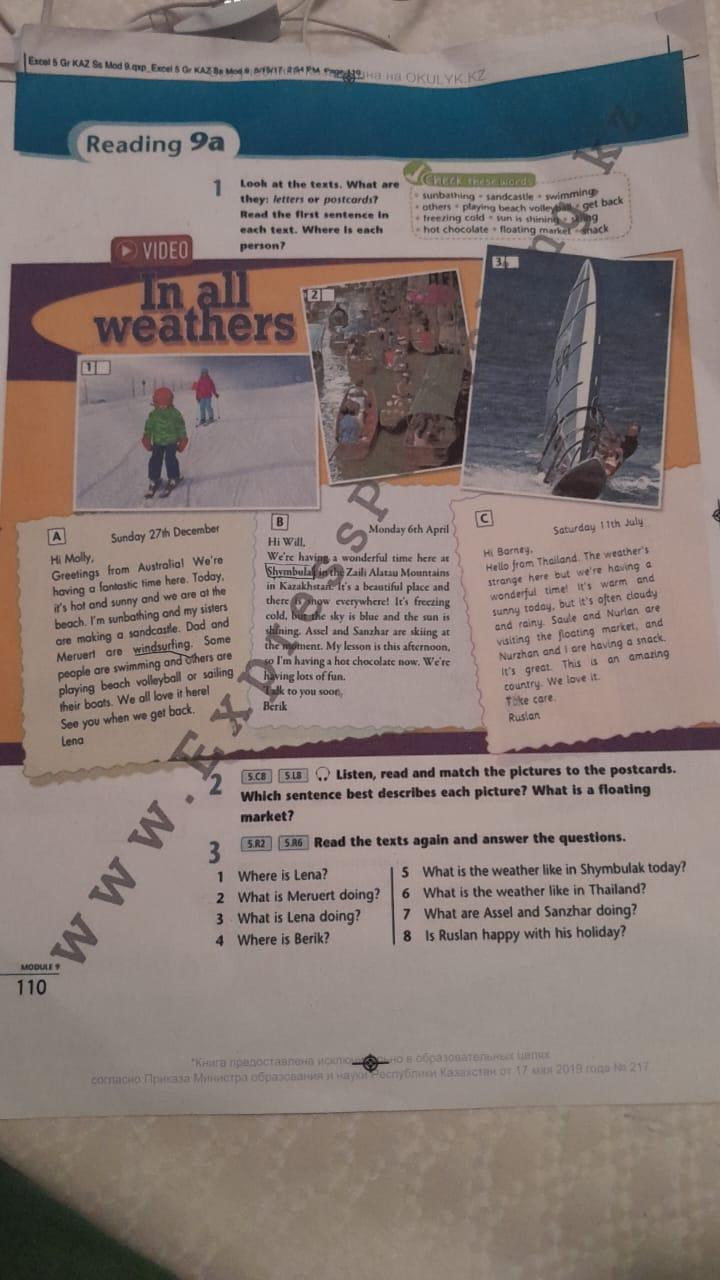 Excel 5 Gr KAZ Ss Mod 9.qxp_Excel 5 Gr KAZ Ss Mod 9 5/19/17 2:54 PM Page 110
на OKULYK.KZ
Reading 9a
1 Look at the texts. What are
they: letters or postcards?
Read the first sentence in
each text. Where is each
person?
Check these words
• sunbathing • sandcastle • swimming
• others • playing beach volleyball • get back
• freezing cold • sun is shining • skiing
• hot chocolate • floating market • snack
VIDEO
In all
weathers
1
2
3
A
Sunday 27th December
Hi Molly,
Greetings from Australia! We're
having a fantastic time here. Today,
it's hot and sunny and we are at the
beach. I'm sunbathing and my sisters
are making a sandcastle. Dad and
Meruert are windsurfing. Some
people are swimming and others are
playing beach volleyball or sailing
their boats. We all love it here!
See you when we get back.
Lena
B
Monday 6th April
Hi Will,
We're having a wonderful time here at
Shymbulak in the Zaili Alatau Mountains
in Kazakhstan. It's a beautiful place and
there is snow everywhere! It's freezing
cold, but the sky is blue and the sun is
shining. Assel and Sanzhar are skiing at
the moment. My lesson is this afternoon,
so I'm having a hot chocolate now. We're
having lots of fun.
Talk to you soon,
Berik
C
Saturday 11th July
Hi Barney,
Hello from Thailand. The weather's
strange here but we're having a
wonderful time! It's warm and
sunny today, but it's often cloudy
and rainy. Saule and Nurlan are
visiting the floating market, and
Nurzhan and I are having a snack.
It's great. This is an amazing
country. We love it.
Take care.
Ruslan
2 5.C8 5.L8 Listen, read and match the pictures to the postcards.
Which sentence best describes each picture? What is a floating
market?
3 5.R2 5.R6 Read the texts again and answer the questions.
1 Where is Lena?
2 What is Meruert doing?
3 What is Lena doing?
4 Where is Berik?
5 What is the weather like in Shymbulak today?
6 What is the weather like in Thailand?
7 What are Assel and Sanzhar doing?
8 Is Ruslan happy with his holiday?
MODULE 9
110
*Книга предоставлена исключительно в образовательных целях
согласно Приказа Министра образования и науки Республики Казахстан от 17 мая 2019 года № 217